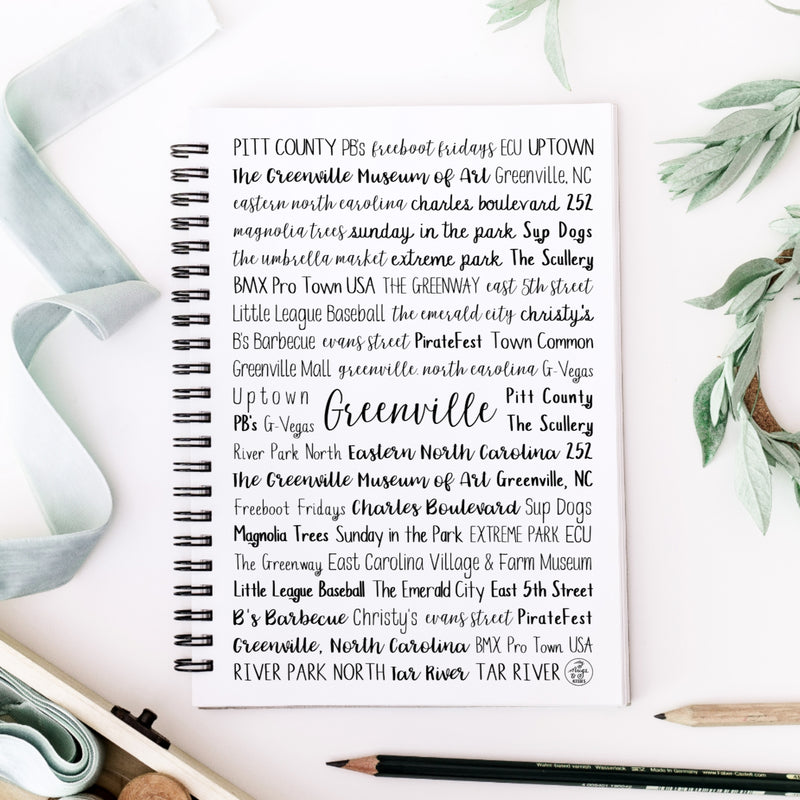 PITT COUNTY PB's freeboot fridays ECU UPTOWN
The Greenville Museum of Art Greenville, NC
eastern north carolina charles boulevard 252
magnolia trees sunday in the park Sup Dogs
the umbrella market extreme park The Scullery
BMX Pro Town USA THE GREENWAY east 5th street
Little League Baseball the emerald city christy's
B's Barbecue evans street PirateFest Town Common
Greenville Mall greenville. north carolina G-Vegas
Uptown Greenville Pitt County
PB's G-Vegas The Scullery
River Park North Eastern North Carolina 252
The Greenville Museum of Art Greenville, NC
Freeboot Fridays Charles Boulevard Sup Dogs
Magnolia Trees Sunday in the Park EXTREME PARK ECU
The Greenway East Carolina Village & Farm Museum
Little League Baseball The Emerald City East 5th Street
B's Barbecue Christy's evans street PirateFest
Greenville, North Carolina BMX Pro Town USA
RIVER PARK NORTH Tar River TAR RIVER
Water-based watercolours Wasserlack Made in Germany www.Faber-Castell.com